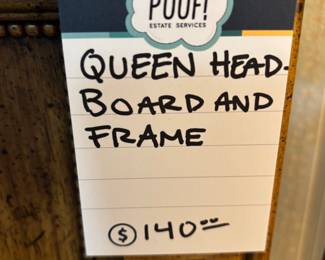 POUF!
ESTATE SERVICES
QUEEN HEAD-
BOARD AND
FRAME
$ 140.00